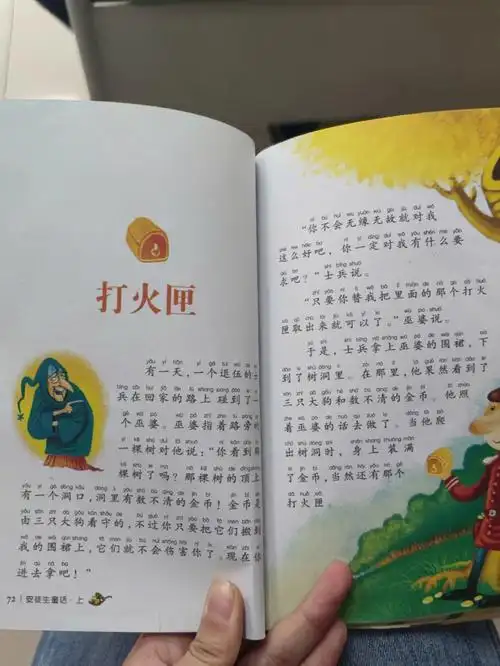 打火匣
有一天，一个退伍的士
兵在回家的路上碰到了一
个巫婆。巫婆指着路旁的
一棵树对他说：“你看到那
棵树了吗？那棵树的顶上
有一个洞口，洞里有数不清的金币！金币是
由三只大狗看守的，不过你只要把它们搬到
我的围裙上，它们就不会伤害你了。现在你
进去拿吧！”
72 安徒生童话·上
“你不会无缘无故就对我
这么好吧，你一定对我有什么要
求吧？”士兵说。
“只要你替我把里面的那个打火
匣取出来就可以了。”巫婆说。
于是，士兵拿上巫婆的围裙，下
到了树洞里。在那里，他果然看到了
三只大狗和数不清的金币。他照
着巫婆的话去做了。当他爬
出树洞时，身上装满
了金币，当然还有那个
打火匣。